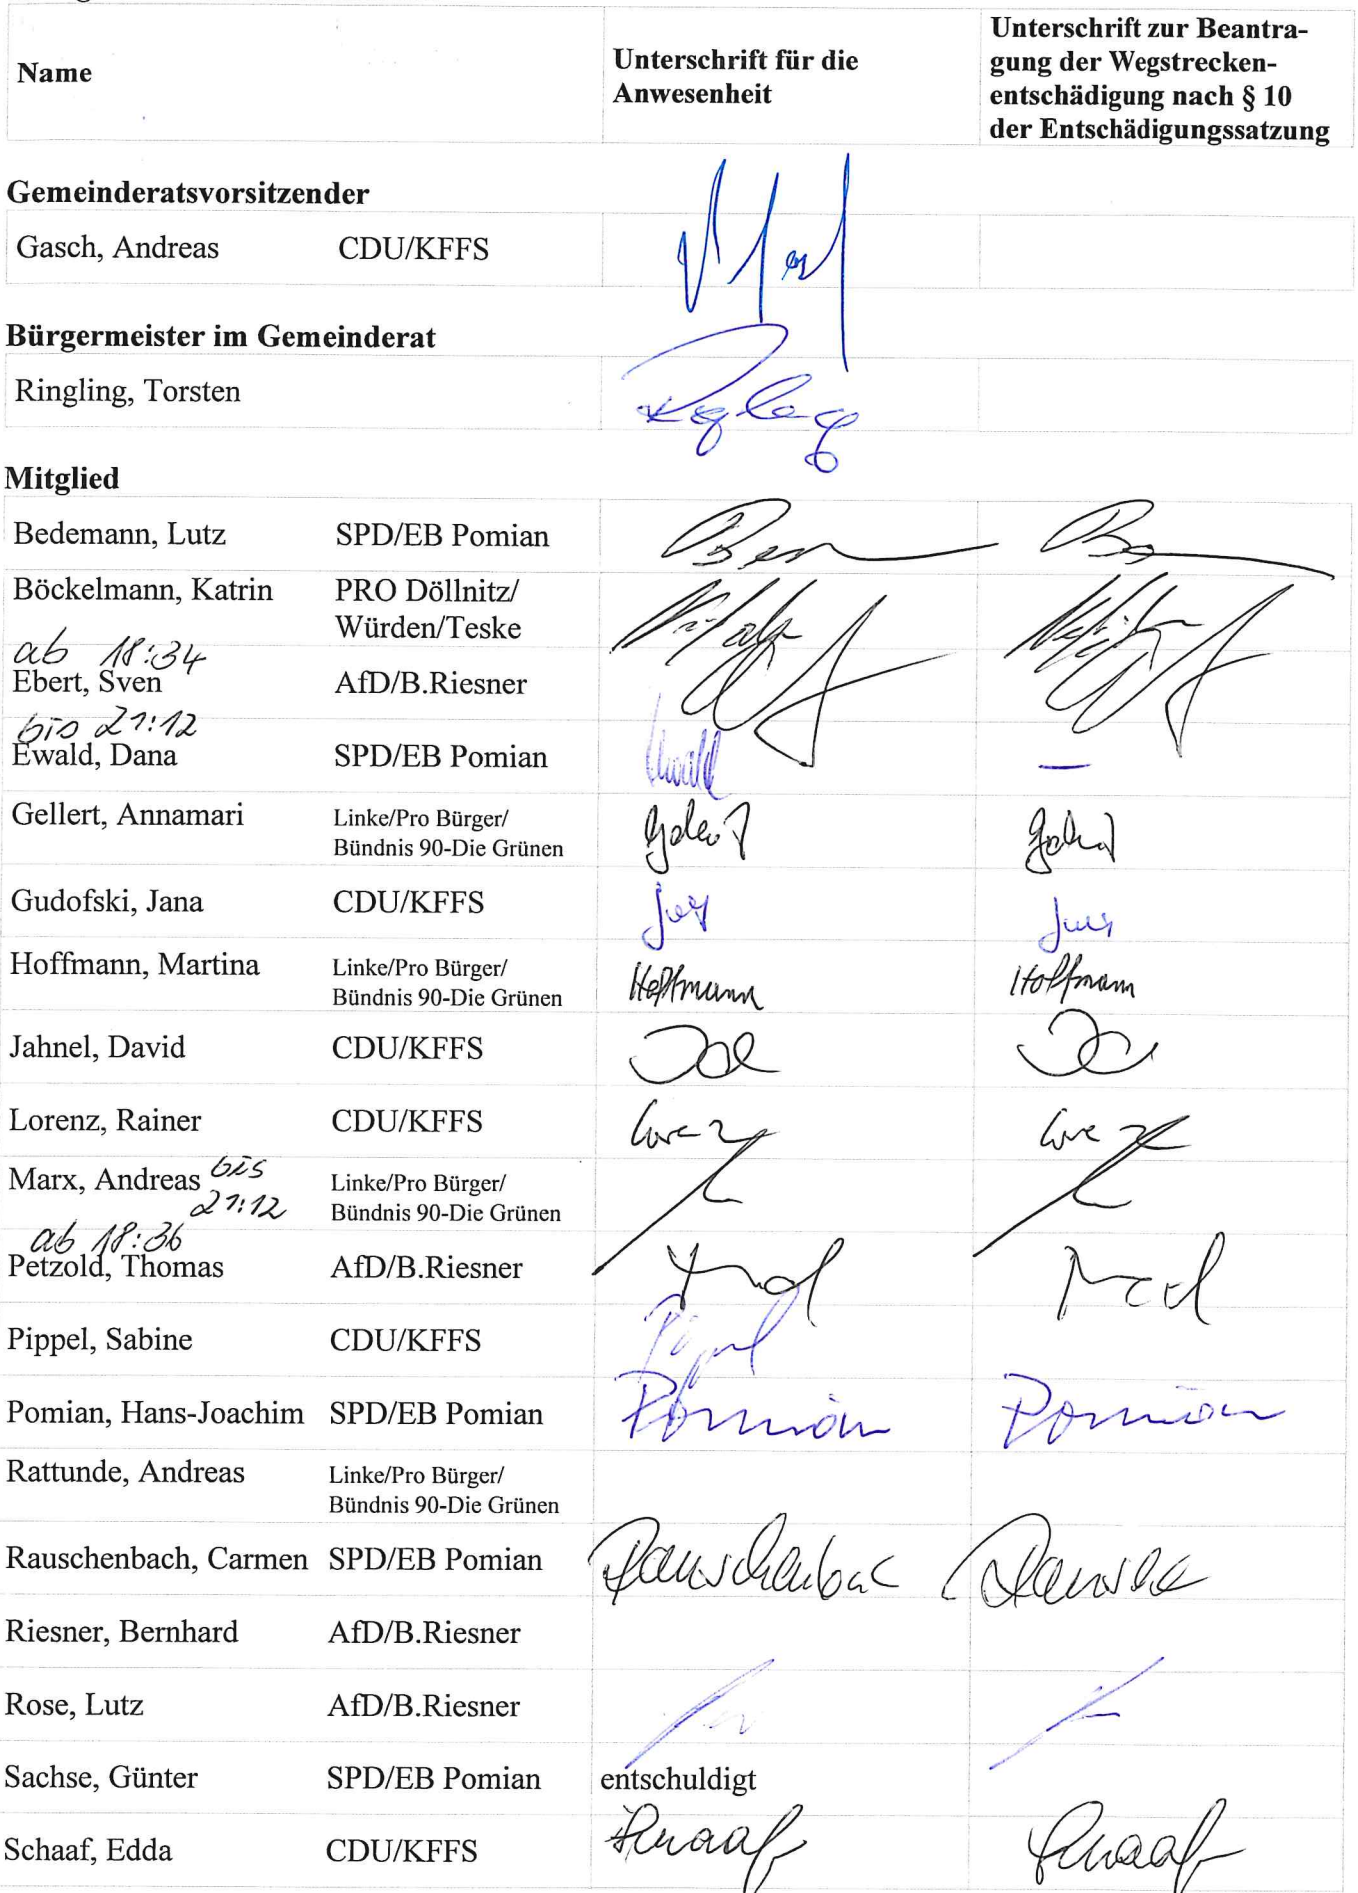 Name
Unterschrift für die
Anwesenheit
Unterschrift zur Beantra-
gung der Wegstrecken-
entschädigung nach § 10
der Entschädigungssatzung
Gemeinderatsvorsitzender
Gasch, Andreas CDU/KFFS
Bürgermeister im Gemeinderat
Ringling, Torsten
Mitglied
Bedemann, Lutz SPD/EB Pomian
Böckelmann, Katrin PRO Döllnitz/
Würden/Teske
ab 18:34
Ebert, Sven AfD/B.Riesner
bis 21:12
Ewald, Dana SPD/EB Pomian Ewald —
Gellert, Annamari Linke/Pro Bürger/
Bündnis 90-Die Grünen
Gudofski, Jana CDU/KFFS
Hoffmann, Martina Linke/Pro Bürger/ Hoffmann Hoffmann
Bündnis 90-Die Grünen
Jahnel, David CDU/KFFS
Lorenz, Rainer CDU/KFFS
Marx, Andreas bis Linke/Pro Bürger/
21:12 Bündnis 90-Die Grünen
ab 18:36
Petzold, Thomas AfD/B.Riesner
Pippel, Sabine CDU/KFFS
Pomian, Hans-Joachim SPD/EB Pomian Pomian Pomian
Rattunde, Andreas Linke/Pro Bürger/
Bündnis 90-Die Grünen
Rauschenbach, Carmen SPD/EB Pomian
Riesner, Bernhard AfD/B.Riesner
Rose, Lutz AfD/B.Riesner
Sachse, Günter SPD/EB Pomian entschuldigt
Schaaf, Edda CDU/KFFS Schaaf Schaaf